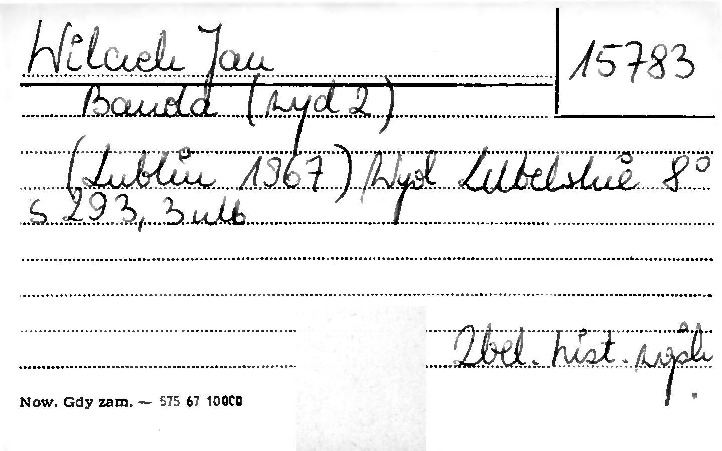 Wilczek Jan
15783
Banda (wyd 2)
(Lublin 1967) Wyd Lubelskie 8°
s 293, 3 nlb
hist.
Now. Gdy zam. — 575 67 10000